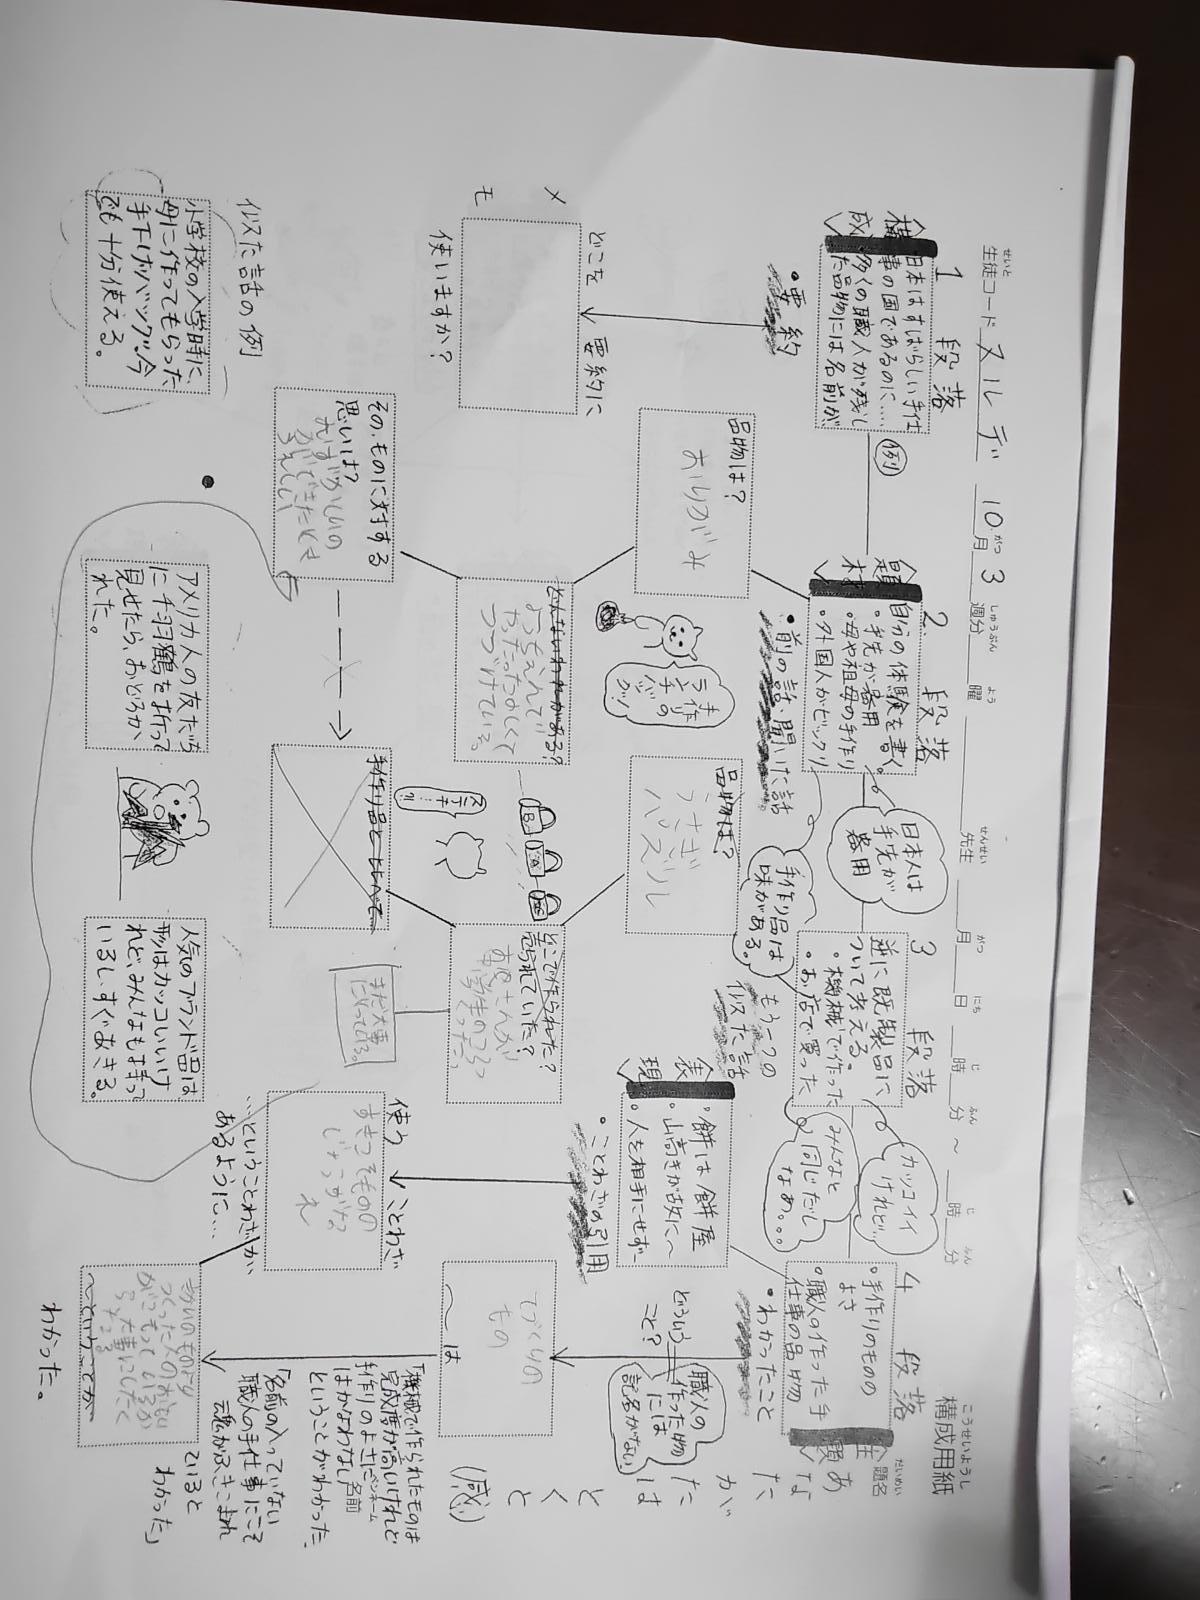 構成用紙
生徒コード ヌルデ 10月3週分 曜 先生 月 日 時 分 ～ 時 分
題名
あなたが
たは
とくと
(感)
1 段落
構成
日本はすばらしい手仕
事の国であるのに…
多くの職人が残し
た品物には名前が、
・要約
要約に
どこを
使いますか?
メモ
例
2 段落
題材
自分の体験を書く。
・手先が器用
・母や祖母の手作り
・外国人がビックリ
・前の話、聞いた話
日本人は
手先が
器用
手作り品は
味がある。
品物は?
おりがみ
手作りの
ランチ
バッグ!
どんないわれがある?
ようちえんで
やったたのしくて
つづけている。
その、ものに対する
思いは?
むずかしいの
ができたとき
うれしい!
3 段落
逆に既製品に
ついて考える。
・機械で作った
・お店で買った
カッコイイ
けれど…
みんなと
同じだし
なぁ。。。
もう一つの
似た話
品物は?
うさぎ
パズル
どこで作られた?
売られていた?
まだ大事
にとってある。
ステキ…!!
手作り品とくらべて
表現
・餅は餅屋
・山高きが故に～
・人を相手にせず、
・ことわざの引用
使う ことわざ
すきこそものの
じょうずなれ
…ということわざが
あるように…
4 段落
主題
・手作りのものの
よさ
・職人の作った手
仕事の品物
・わかったこと
どういう
こと?
職人の
作った物
には
記名がない。
てづくりの
もの
～は
～ということが
わかった。
「機械で作られたものは
完成度が高いけれど
手作りのよさにはかなわない
ということがわかった。
「名前の入っていない
職人の手仕事にこそ
魂がふきこまれ
ていると
わかった」
似た話の例
小学校の入学時に、
母に作ってもらった
手下げバックが、今
でも十分使える。
アメリカ人の友だち
に千羽鶴を折って
見せたら、おどろか
れた。
人気のブランド品は
形はカッコいいけ
れど、みんなも持って
いるし、すぐあきる。